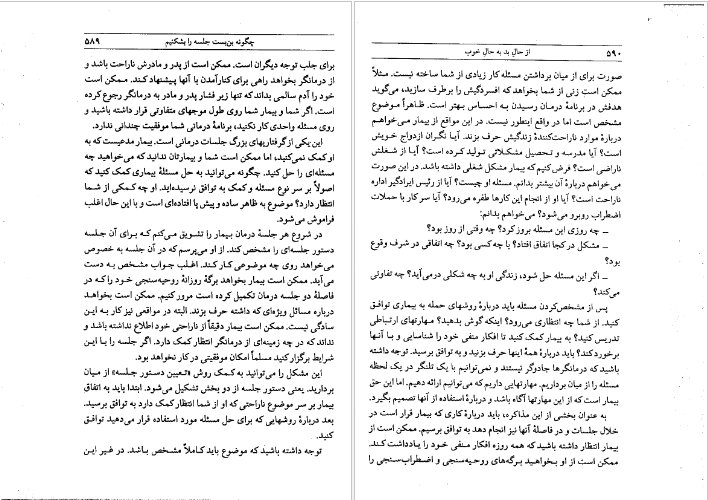 چگونه بن‌بست جلسه را بشکنیم ۵۸۹
برای جلب توجه دیگران است. ممکن است از پدر و مادرش ناراحت باشد و
از درمانگر بخواهد راهی برای کنارآمدن با آنها پیشنهاد کند. ممکن است
خود را آدم سالمی بداند که تنها زیر فشار پدر و مادر به درمانگر رجوع کرده
است. اگر شما و بیمار شما روی طول موجهای متفاوتی قرار داشته باشید و
روی مسئله واحدی کار نکنید، برنامهٔ درمانی شما موفقیت چندانی ندارد.
این یکی از گرفتاریهای بزرگ جلسات درمانی است. بیمار مدعیست که به
او کمک نمی‌کنید، اما ممکن است شما و بیمارتان ندانید که می‌خواهید چه
مسئله‌ای را حل کنید. چگونه می‌توانید به حل مسئلهٔ بیماری کمک کنید که
اصولاً بر سر نوع مسئله و کمک به توافق نرسیده‌اید. او چه کمکی از شما
انتظار دارد؟ موضوع به ظاهر ساده و پیش پا افتاده‌ای است و با این حال اغلب
فراموش می‌شود.
در شروع هر جلسهٔ درمان بیمار را تشویق می‌کنم که برای آن جلسه
دستور جلسه‌ای را مشخص کند. از او می‌پرسم که در آن جلسه به خصوص
می‌خواهد روی چه موضوعی کار کند. اغلب جواب مشخص به دست
می‌آید. ممکن است بیمار بخواهد برگهٔ روزانهٔ روحیه‌سنجی خود را که در
فاصلهٔ دو جلسه درمان تکمیل کرده است مرور کنیم. ممکن است بخواهد
درباره مسائل ویژه‌ای که داشته حرف بزند. البته در مواقعی نیز کار به این
سادگی نیست. ممکن است بیمار دقیقاً از ناراحتی خود اطلاع نداشته باشد و
نداند که در چه زمینه‌ای از درمانگر انتظار کمک دارد. اگر جلسه را با این
شرایط برگزار کنید مسلماً امکان موفقیتی در کار نخواهد بود.
این مشکل را می‌توانید به کمک روش «تعیین دستور جلسه» از میان
بردارید. یعنی دستور جلسه از دو بخش تشکیل می‌شود. ابتدا باید به اتفاق
بیمار بر سر موضوع ناراحتی که او از شما انتظار کمک دارد به توافق برسید.
بعد دربارهٔ روشهایی که برای حل مسئله مورد استفاده قرار می‌دهید توافق
کنید.
توجه داشته باشید که موضوع باید کاملاً مشخص باشد. در غیر این
۵۹۰ از حالِ بد به حالِ خوب
صورت برای از میان برداشتن مسئله کار زیادی از شما ساخته نیست. مثلاً
ممکن است زنی از شما بخواهد که افسردگیش را برطرف سازید، می‌گوید
هدفش در برنامهٔ درمان رسیدن به احساس بهتر است. ظاهراً موضوع
مشخص است اما در واقع اینطور نیست. در این مواقع از بیمار می‌خواهم
دربارهٔ موارد ناراحت‌کنندهٔ زندگیش حرف بزند. آیا نگران ازدواج خویش
است؟ آیا مدرسه و تحصیل مشکلاتی تولید کرده است؟ آیا از شغلش
ناراضی است؟ فرض کنیم که بیمار مشکل شغلی داشته باشد. در این صورت
می‌خواهم دربارهٔ آن بیشتر بدانم. مسئله او چیست؟ آیا از رئیس ایرادگیر اداره
ناراحت است؟ آیا او از انجام این کارها طفره می‌رود؟ آیا سر کار با حملات
اضطراب روبرو می‌شود؟ می‌خواهم بدانم:
ــ چه روزی این مسئله بروز کرد؟ چه وقتی از روز بود؟
ــ مشکل در کجا اتفاق افتاد؟ با چه کسی بود؟ چه اتفاقی در شرف وقوع
بود؟
ــ اگر این مسئله حل شود، زندگی او به چه شکلی درمی‌آید؟ چه تفاوتی
می‌کند؟
پس از مشخص‌کردن مسئله باید دربارهٔ روشهای حمله به بیماری توافق
کنید. از شما چه انتظاری می‌رود؟ اینکه گوش بدهید؟ مهارتهای ارتباطی
تدریس کنید؟ به بیمار کمک کنید تا افکار منفی خود را شناسایی و با آنها
برخورد کند؟ باید دربارهٔ همهٔ اینها حرف بزنید و به توافق برسید. توجه داشته
باشید که درمانگرها جادوگر نیستند و نمی‌توانیم با یک تلنگر در یک لحظه
مسئله را از میان برداریم. مهارتهایی داریم که می‌توانیم ارائه دهیم. اما این حق
بیمار است که از این مهارتها آگاه باشد و دربارهٔ استفاده از آنها تصمیم بگیرد.
به عنوان بخشی از این مذاکره، باید دربارهٔ کاری که بیمار قرار است در
خلال جلسات و در فاصلهٔ آنها نیز انجام دهد به توافق برسیم. ممکن است از
بیمار انتظار داشته باشید که همه روزه افکار منفی خود را یادداشت کند.
ممکن است از او بخواهید برگه‌های روحیه‌سنجی و اضطراب‌سنجی را